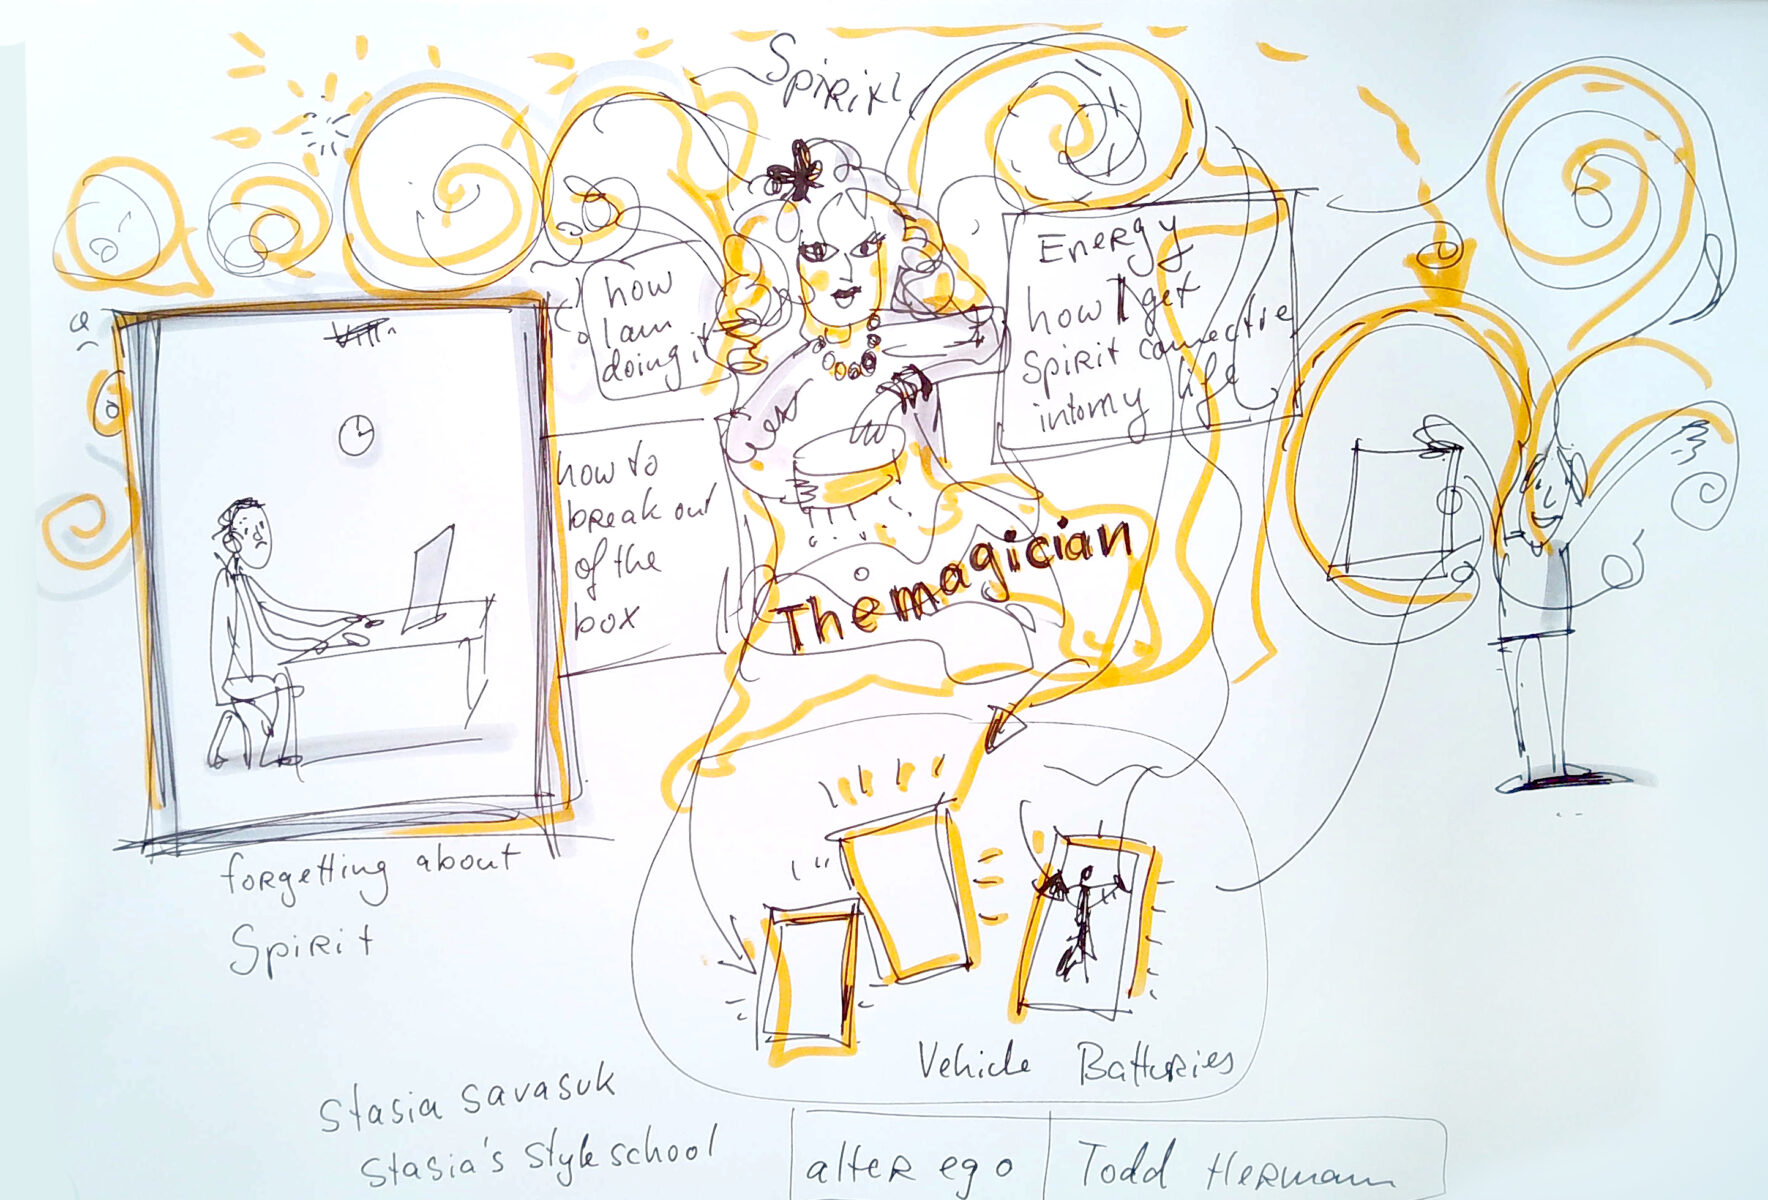 Spirit
how
I am
doing it
Energy
how I get
Spirit connective
into my life
how to
break out
of the
box
The magician
forgetting about
Spirit
Vehicle Batteries
Stasia Savasuk
Stasia's Style school
alter ego
Todd Hermann